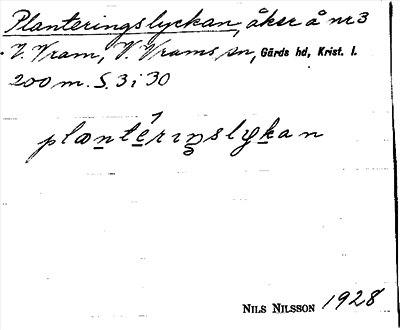 Planteringslyckan, åker å nr 3
V. Vram, V. Vrams sn, Gärds hd, Krist. l.
200 m. S. 3 i 30
plantériŋslykan
NILS NILSSON 1928